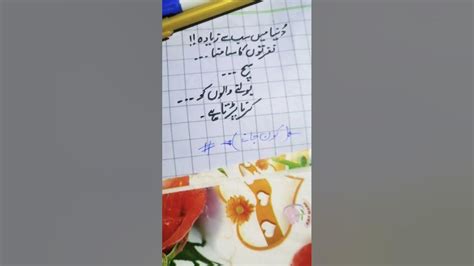 دُنیا میں سب سے زیادہ!!
نفرتوں کا سامنا ---
سچ ---
بولنے والوں کو ---
کرنا پڑتا ہے -